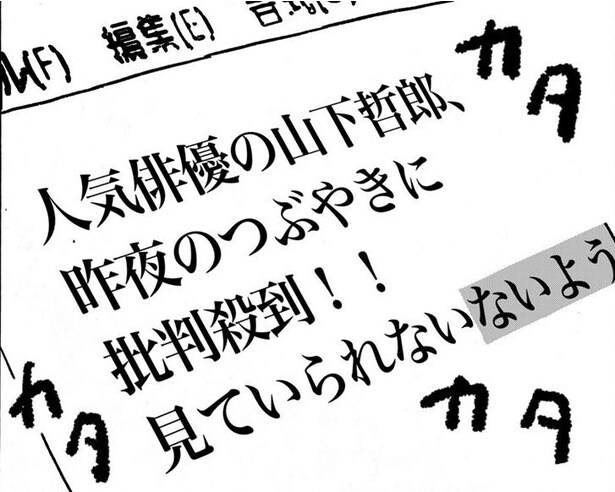 ル(F) 編集(E)
人気俳優の山下哲郎、
昨夜のつぶやきに
批判殺到！！
見ていられないないよう
カタ
カタ
カタ